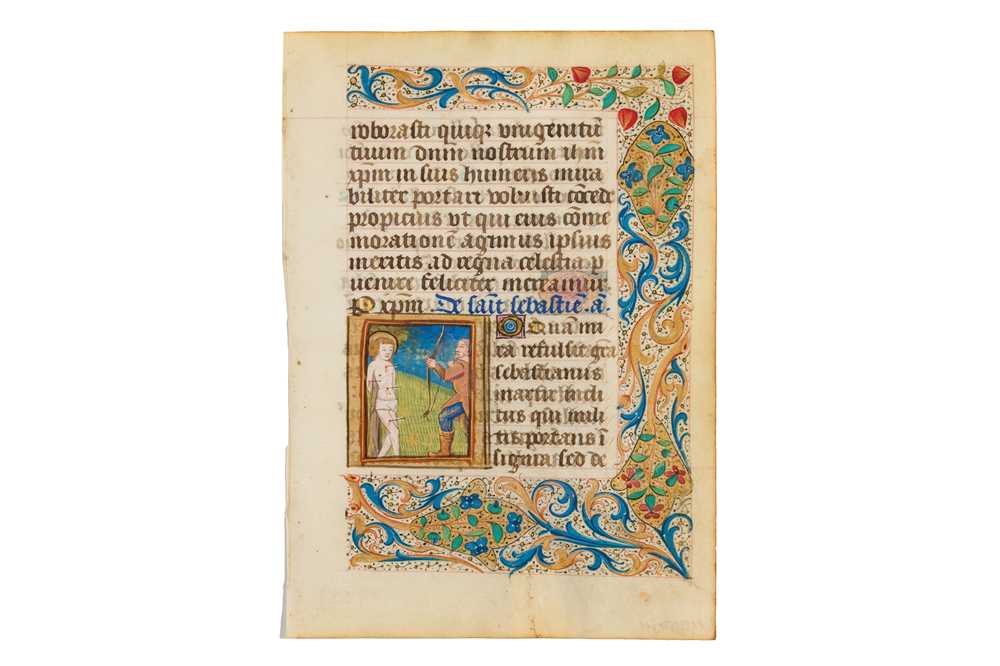 roborasti quiqz vnigenitū
tuum dnm nostrum ihm
xpm in suis humeris mira
biliter portari voluisti cōcede
propicius vt qui eius cōme
morationē agimus ipsius
meritis ad regna celestia p
venire feliciter mereamur
P xpm. De saīt sebastiē. ā.
O Quam mi
ra refulsit gra
sebastianus
martir incli
tus qui mili
tis portans ī
signia sed de